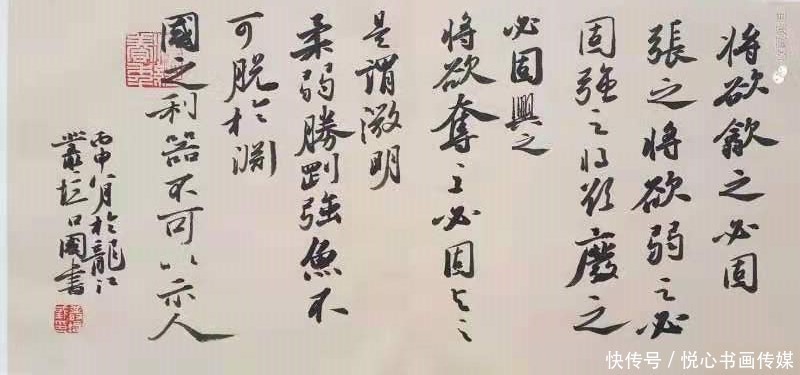 将欲歙之必固
張之将欲弱之必
固強之将欲廢之
必固興之
将欲奪之必固与之
是謂微明
柔弱勝剛強魚不
可脱於淵
國之利器不可以示人
丙申八月於龍江
國書
快传号/悦心书画传媒